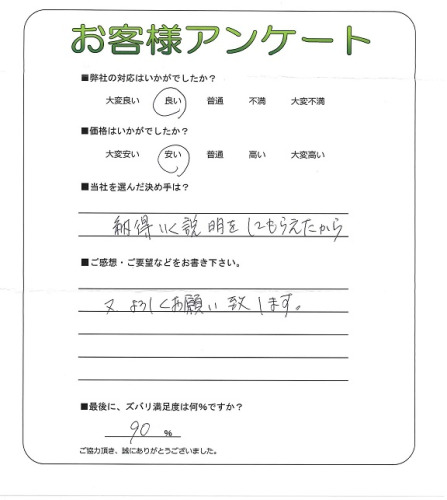 お客様アンケート
■弊社の対応はいかがでしたか?
大変良い 良い 普通 不満 大変不満
■価格はいかがでしたか?
大変安い 安い 普通 高い 大変高い
■当社を選んだ決め手は?
納得いく説明をしてもらえたから
■ご感想・ご要望などをお書き下さい。
又よろしくお願い致します。
■最後に、ズバリ満足度は何%ですか?
90 %
ご協力頂き、誠にありがとうございました。